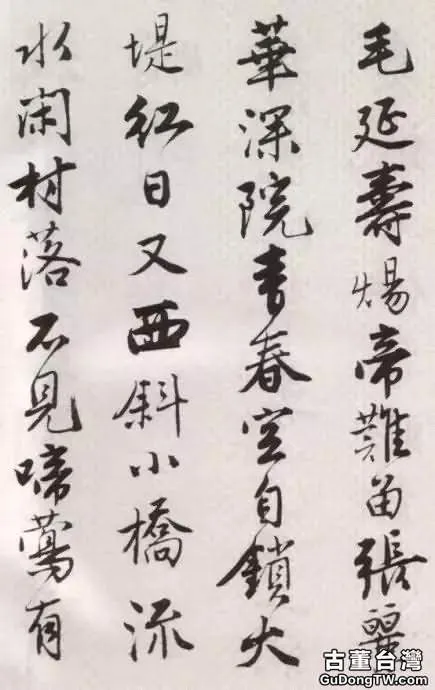 毛延壽煬帝難留張麗
華深院青春空自鎖大
堤紅日又西斜小橋流
水閑村落不見啼鶯有
古董台灣
GuDongTW.com